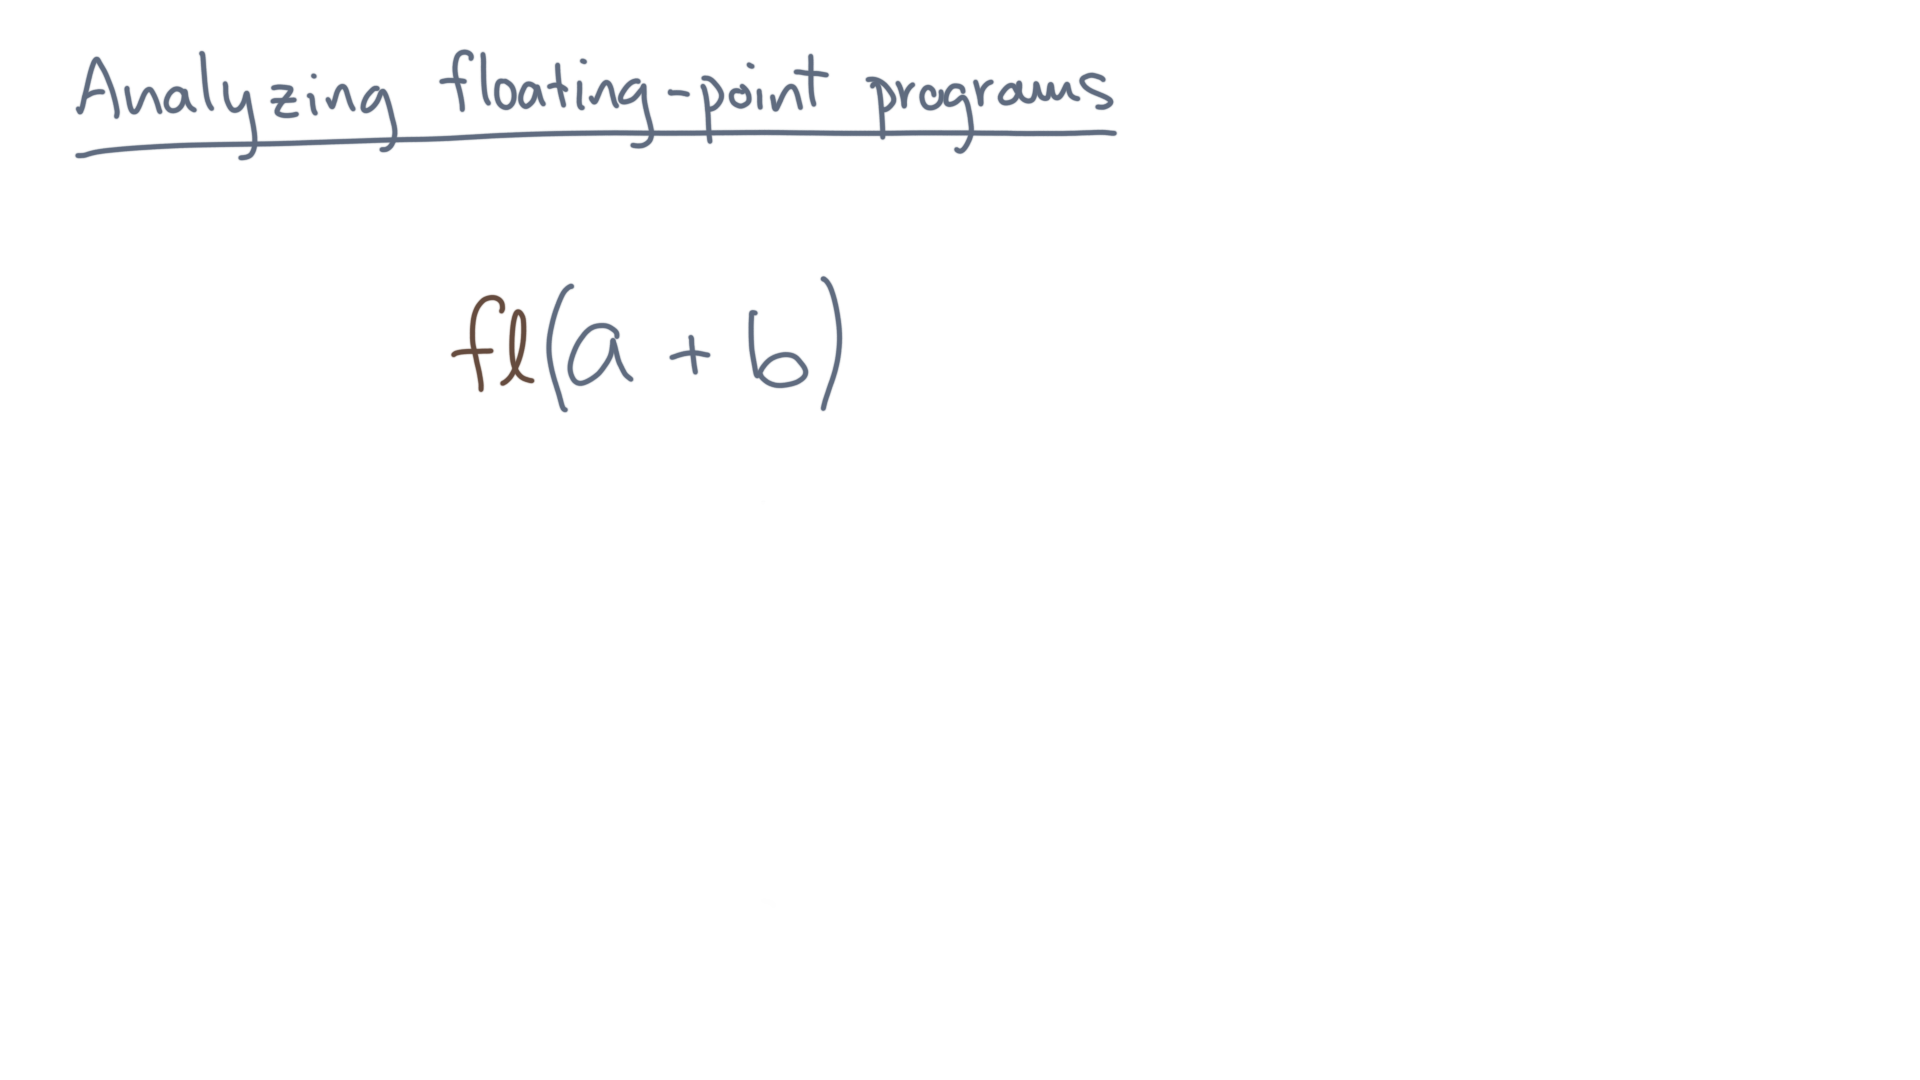 Analyzing floating-point programs
fl(a + b)